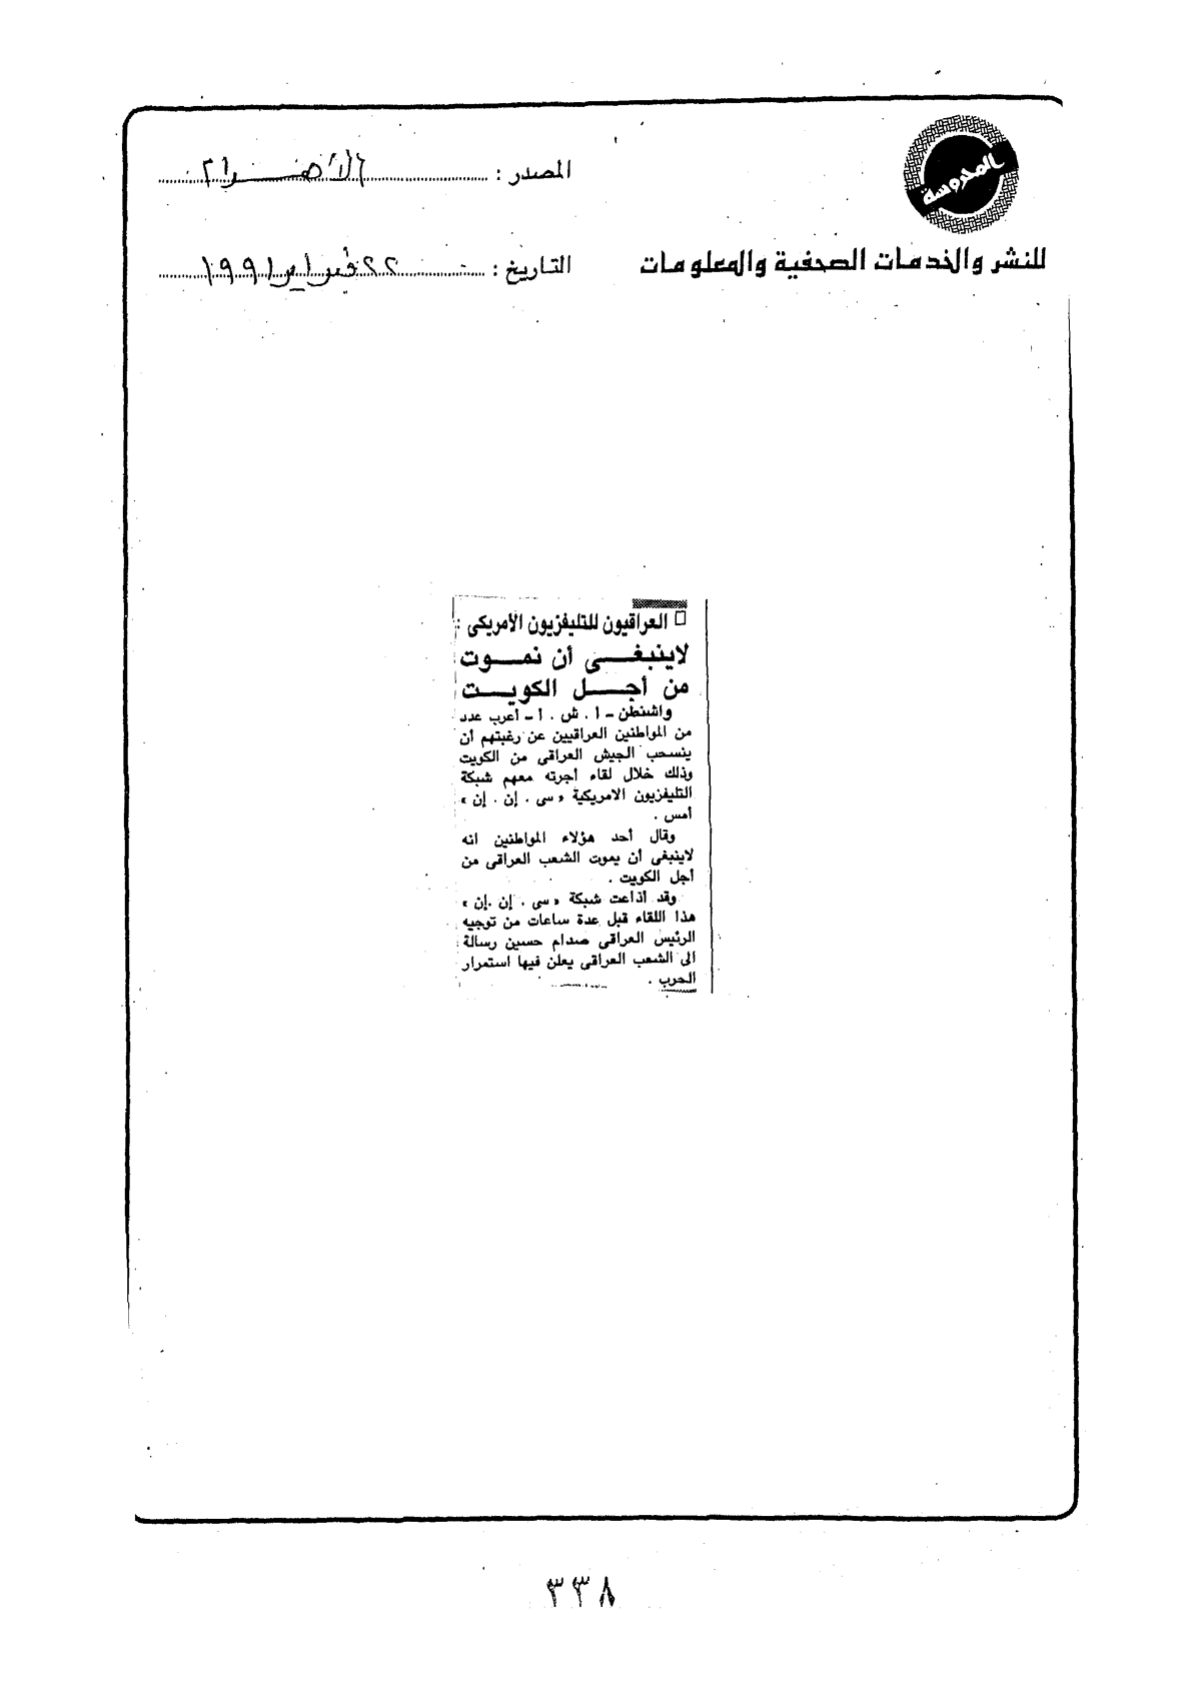 المحروسة
المصدر : الأهرام
للنشر والخدمات الصحفية والمعلومات
التاريخ : ٢٢ فبراير ١٩٩١
□ العراقيون للتليفزيون الأمريكى :
لاينبغى أن نموت
من أجل الكويت
واشنطن ــ ا . ش . ا ــ أعرب عدد
من المواطنين العراقيين عن رغبتهم أن
ينسحب الجيش العراقى من الكويت
وذلك خلال لقاء أجرته معهم شبكة
التليفزيون الامريكية « سى . إن . إن »
أمس .
وقال أحد هؤلاء المواطنين انه
لاينبغى أن يموت الشعب العراقى من
أجل الكويت .
وقد أذاعت شبكة « سى . إن .إن »
هذا اللقاء قبل عدة ساعات من توجيه
الرئيس العراقى صدام حسين رسالة
الى الشعب العراقى يعلن فيها استمرار
الحرب .
٣٣٨